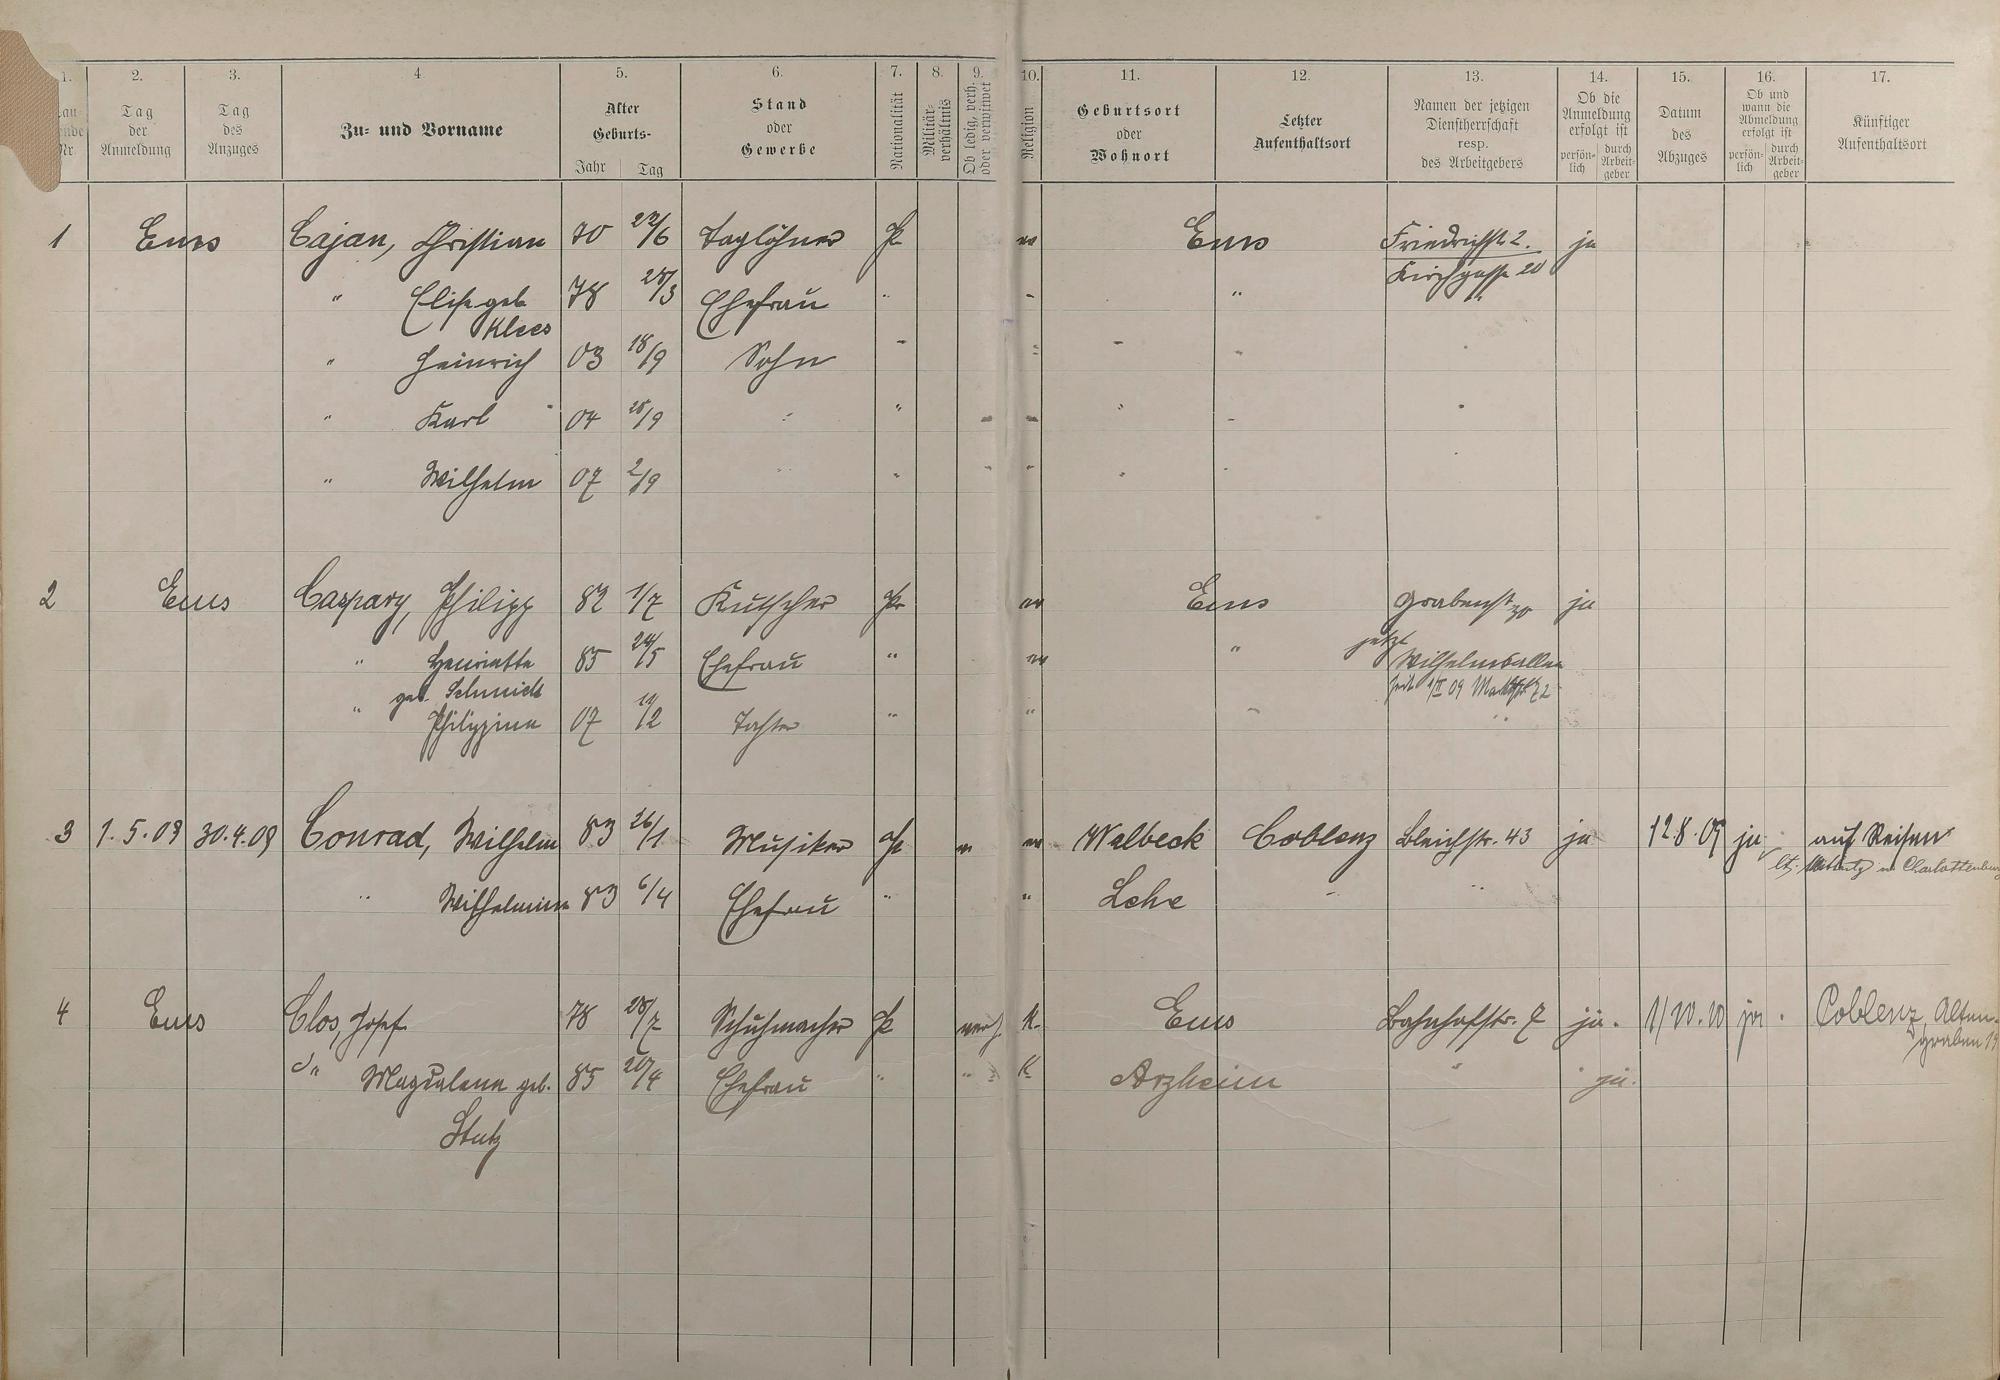 1. 2. 3. 4 5. 6. 7. 8. 9. 10. 11. 12. 13. 14. 15. 16. 17.
Tag der Anmeldung
Tag des Anzuges
Zu= und Vorname
Alter
Geburts-
Jahr Tag
Stand oder Gewerbe
Nationalität
Militär-verhältnis
Ob ledig, verh. oder verwitwet
Religion
Geburtsort oder Wohnort
Letzter Aufenthaltsort
Namen der jetzigen Dienstherrschaft resp. des Arbeitgebers
Ob die Anmeldung erfolgt ist
persön-lich durch Arbeit-geber
Datum des Abzuges
Ob und wann die Abmeldung erfolgt ist
persön-lich durch Arbeit-geber
Künftiger Aufenthaltsort
1 Ems Cajan, Christian 70 22/6 Taglöhner Pr ev Ems Friedrichstr. 2. ja
Kirchgasse 20
" Elise geb. 78 28/3 Ehefrau " "
Klees
" Heinrich 03 18/9 Sohn
" Karl 04 28/9 "
" Wilhelm 07 2/9 "
2 Ems Caspary, Philipp 82 1/7 Kutscher Pr ev Ems Grabenstr 30 ja
jetzt
" Henriette 85 24/5 Ehefrau " ev " Wilhelmsallee
geb. Schmidt seit 1/II 09
" Philippine 07 /2 Tochter " " "
3 1.5.09 30.4.09 Conrad, Wilhelm 83 26/1 Musiker Pr ev Walbeck Coblenz Bleichstr. 43 ja 12.8.09 ja auf Reisen
in Charlottenburg
" Wilhelmine 83 6/4 Ehefrau " " Lehe " "
4 Ems Clos, Josef 78 28/7 Schuhmacher Pr verh. K. Ems Bahnhofstr. 7 ja. 1/10.10 ja. Coblenz, Alten-
graben 19
" Magdalena geb. 85 20/4 Ehefrau " " K Arzheim " ja.
Stutz